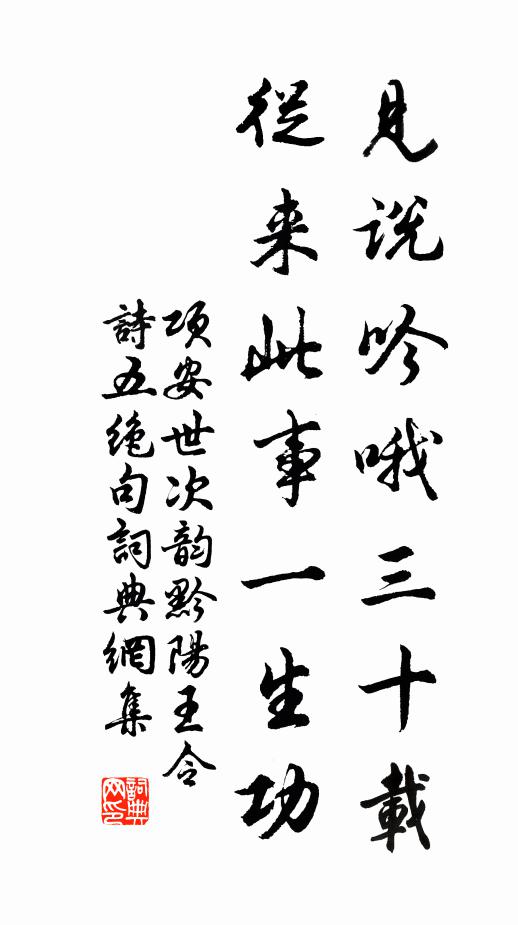 見説吟哦三十載
從来此事一生功
項安世次韵黔陽王令
詩五絶句詞典網集
詞典
网印